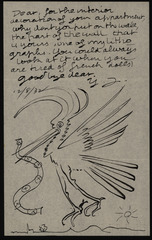 Dear, for the interior
decoration of your appartment
why dont you put on the walls
the part of the wall that
is yours one of my litho
graphs. You could always
look at it when you
are tired of french
goodbye dear